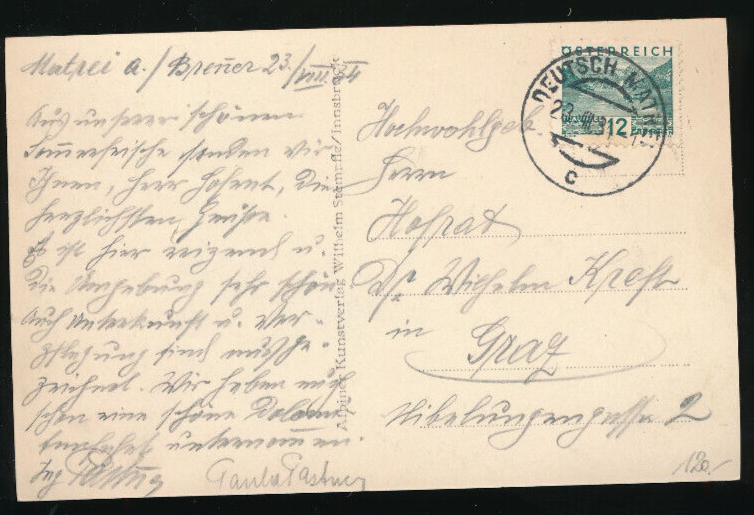 Matrei a./Brenner 23./VIII. 34
Aus unserer schönen
Sommerfrische senden wir
Ihnen, Herr Hofrat, die
herzlichsten Grüße.
Es ist hier reizend u.
die Umgebung sehr schön
Auch Unterkunft u. Ver-
pflegung sind ausge-
zeichnet. Wir haben auch
schon eine schöne Dolomi
tenfahrt unternommen.
Ing Pastner Paula Pastner
Alpiner Kunstverlag Wilhelm Stempfle/Innsbruck
ÖSTERREICH
12
DEUTSCH MATR
C
Hochwohlgeb.
Herrn
Hofrat
Dr Wilhelm Kraft
in
Graz
Nibelungengasse 2
120.-